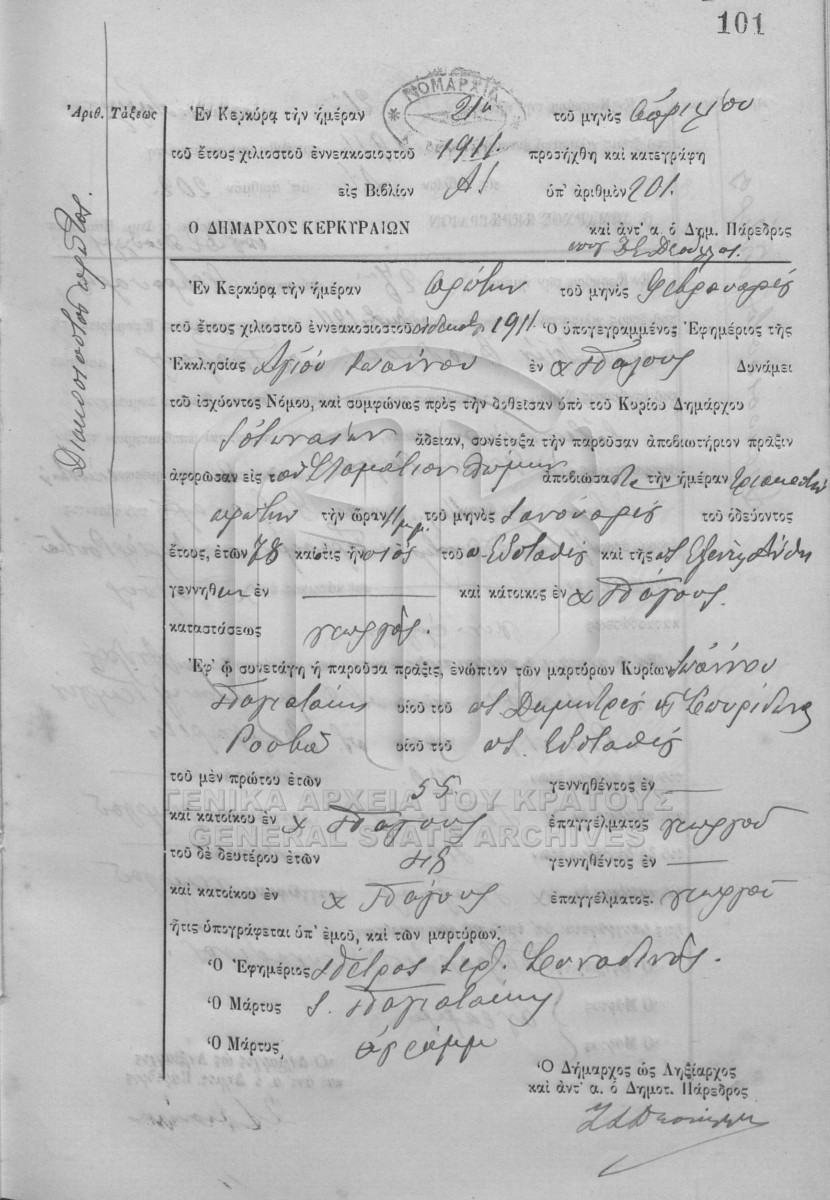 101
ΝΟΜΑΡΧΙΑ
Ἀριθ. Τάξεως Ἐν Κερκύρᾳ τὴν ἡμέραν 21η τοῦ μηνὸς Ἀπριλίου
τοῦ ἔτους χιλιοστοῦ ἐννεακοσιοστοῦ 1911. προσήχθη καὶ κατεγράφη
εἰς Βιβλίον Α/ ὑπ' ἀριθμὸν 201.
Ο ΔΗΜΑΡΧΟΣ ΚΕΡΚΥΡΑΙΩΝ καὶ ἀντ' α. ὁ Δημ. Πάρεδρος
Διακοσιοστος πρῶτος.
Ἐν Κερκύρᾳ τὴν ἡμέραν πρώτην τοῦ μηνὸς Φεβρουαρίου
τοῦ ἔτους χιλιοστοῦ ἐννεακοσιοστοῦ 1911 Ὁ ὑπογεγραμμένος Ἐφημέριος τῆς
Ἐκκλησίας Ἁγίου Ἰωάννου ἐν χ Πάγους Δυνάμει
τοῦ ἰσχύοντος Νόμου, καὶ συμφώνως πρὸς τὴν δοθεῖσαν ὑπὸ τοῦ Κυρίου Δημάρχου
ἄδειαν, συνέταξα τὴν παροῦσαν ἀποβιωτήριον πρᾶξιν
ἀφορῶσαν εἰς τὸν Σταμάτιον ἀποβιώσαντα τὴν ἡμέραν τριακοστὴν
πρώτην τὴν ὥραν 11 μ.μ. τοῦ μηνὸς Ἰανουαρίου τοῦ ὁδεύοντος
ἔτους, ἐτῶν 78 καὶ ὅστις ἦν υἱὸς τοῦ π. Εὐσταθίου καὶ τῆς π. Ἑλένης
γεννηθεν ἐν — καὶ κάτοικος ἐν χ Πάγους.
καταστάσεως γεωργὸς.
Ἐφ' ᾧ συνετάγη ἡ παροῦσα πρᾶξις, ἐνώπιον τῶν μαρτύρων Κυρίων Ἰωάννου
Παγιατάκη υἱοῦ τοῦ π. Δημητρίου καὶ Σπυρίδωνα
Ρουβᾶ υἱοῦ τοῦ π. Εὐσταθίου
τοῦ μὲν πρώτου ἐτῶν 55. γεννηθέντος ἐν —
ΓΕΝΙΚΑ ΑΡΧΕΙΑ ΤΟΥ ΚΡΑΤΟΥΣ
καὶ κατοίκου ἐν χ Πάγους ἐπαγγέλματος γεωργοῦ
GENERAL STATE ARCHIVES
τοῦ δὲ δευτέρου ἐτῶν 48 γεννηθέντος ἐν —
καὶ κατοίκου ἐν χ Πάγους ἐπαγγέλματος. γεωργοῦ
ἥτις ὑπογράφεται ὑπ' ἐμοῦ, καὶ τῶν μαρτύρων.
Ὁ Ἐφημέριος Πέτρος ἱερ.
Ὁ Μάρτυς Ι. Παγιατάκης
Ὁ Μάρτυς ἀγράμμ
Ὁ Δήμαρχος ὡς Ληξίαρχος
καὶ ἀντ' α. ὁ Δημοτ. Πάρεδρος